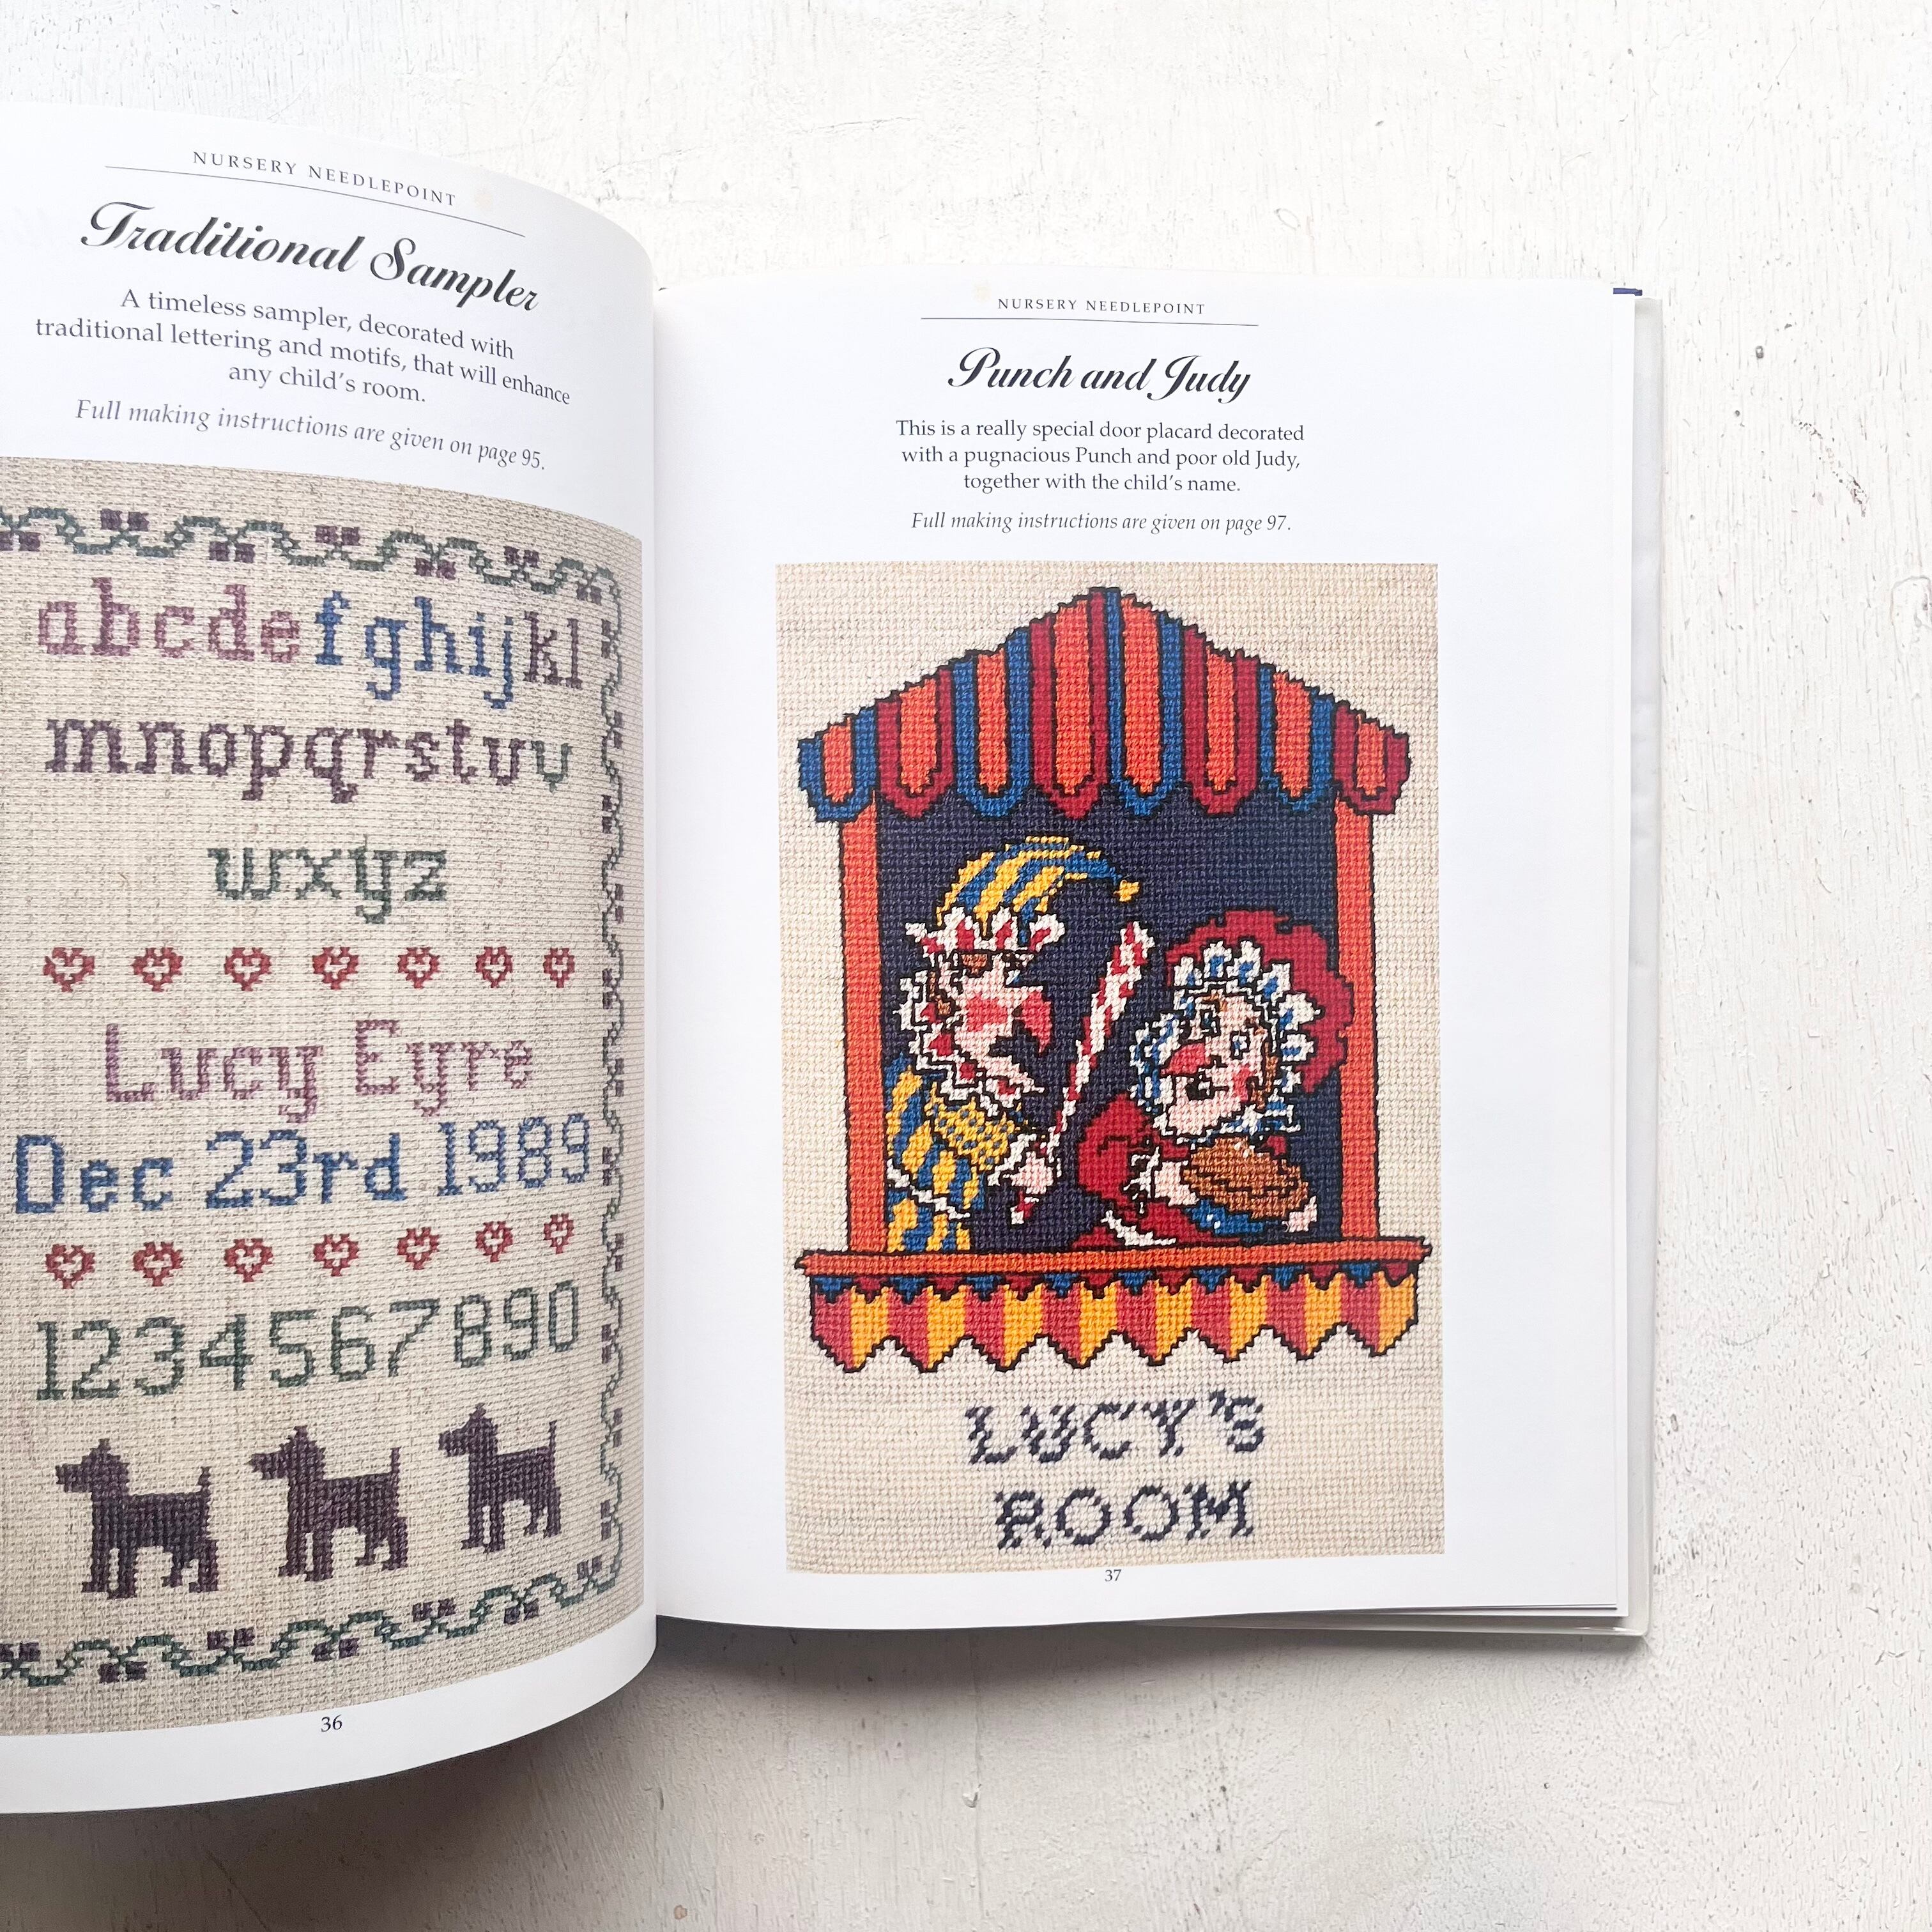 NURSERY NEEDLEPOINT
Traditional Sampler
A timeless sampler, decorated with
traditional lettering and motifs, that will enhance
any child's room.
Full making instructions are given on page 95.
abcdefghijkl
mnopqrstuv
wxyz
Lucy Eyre
Dec 23rd 1989
1234567890
36
NURSERY NEEDLEPOINT
Punch and Judy
This is a really special door placard decorated
with a pugnacious Punch and poor old Judy,
together with the child's name.
Full making instructions are given on page 97.
LUCY'S
ROOM
37